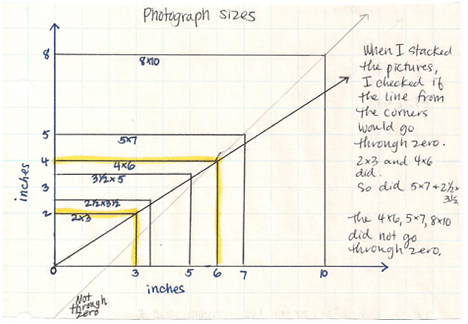 Photograph sizes
8
8x10
5
5x7
4
4x6
3½x5
2½x3½
2
2x3
inches
0
3
5
6
7
10
inches
Not
through
zero
When I stacked
the pictures,
I checked if
the line from
the corners
would go
through zero.
2x3 and 4x6
did.
So did 5x7+2½x
3½
The 4x6, 5x7, 8x10
did not go
through zero.